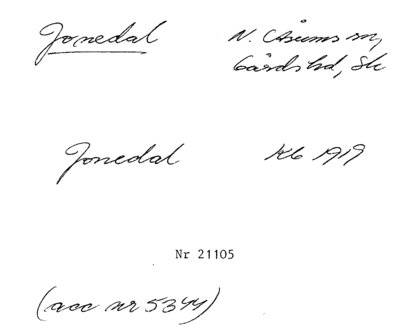 Jonedal N. Åsums sn,
Gärds hd, Sk
Jonedal Kb 1919
Nr 21105
(acc nr 5344)